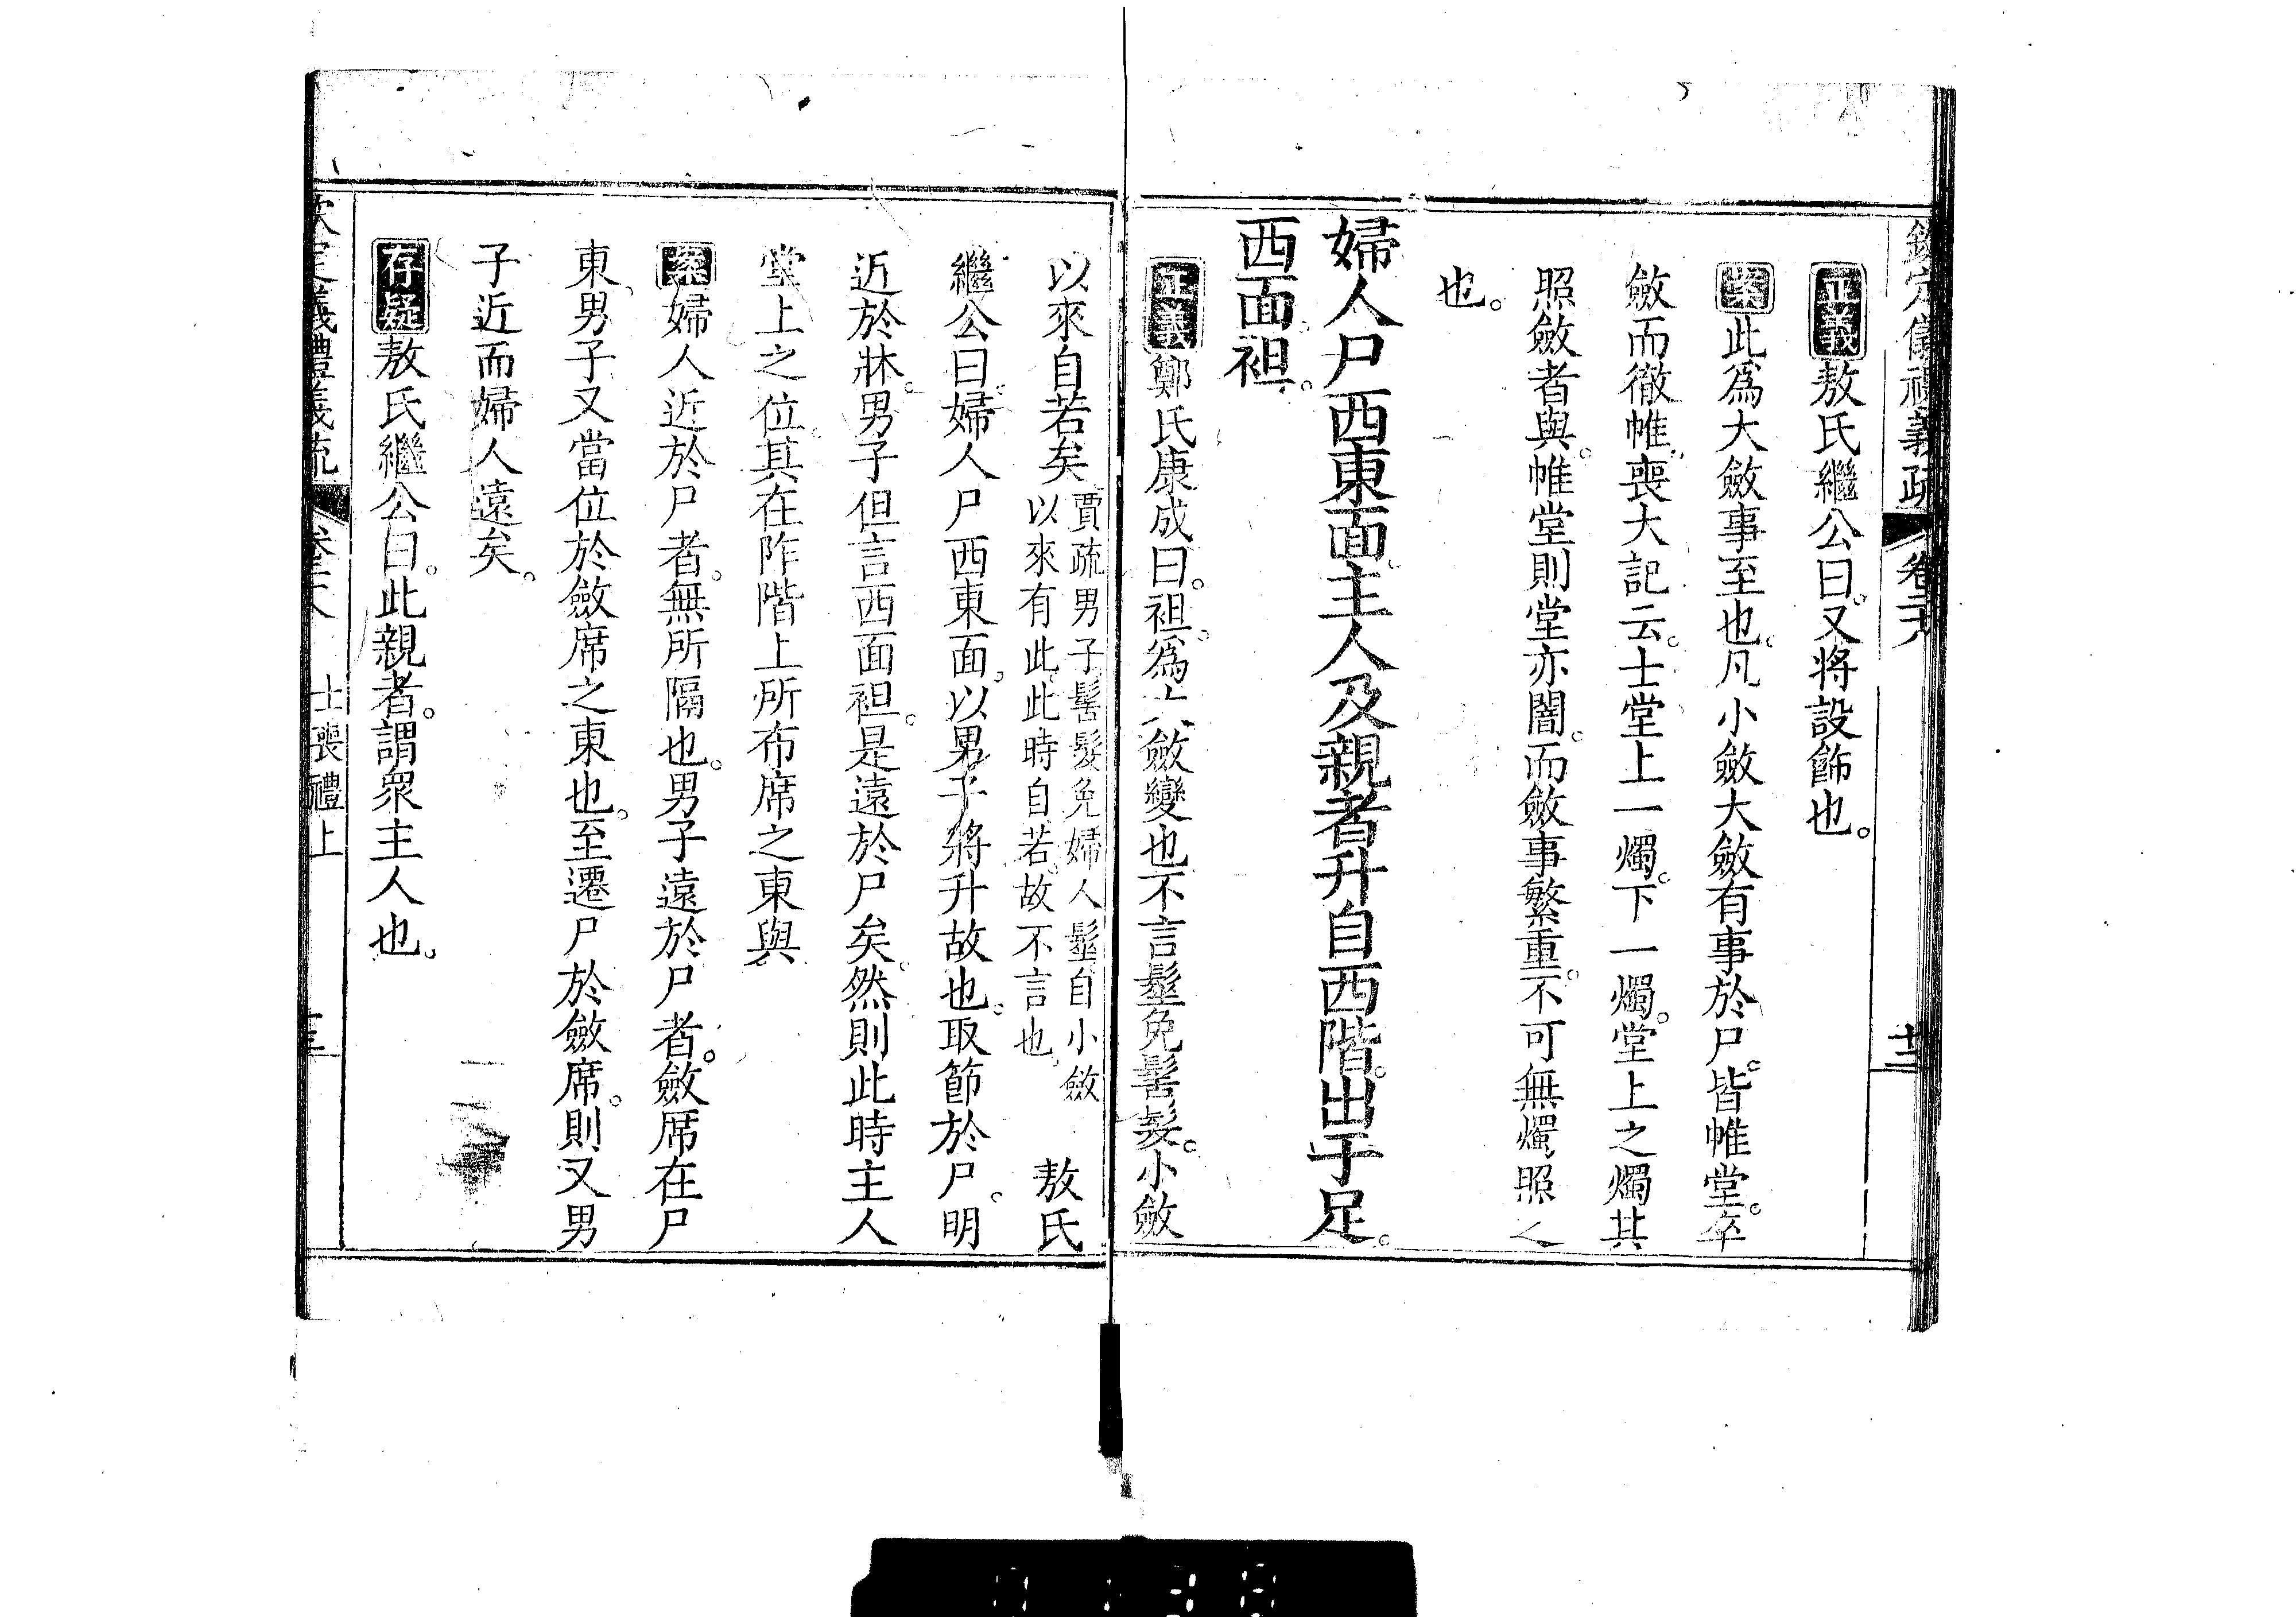 欽定儀禮義疏 卷二十八 廿三
正義敖氏繼公曰。又將設飾也。
案此爲大斂事至也。凡小斂大斂有事於尸。皆帷堂。卒
斂而徹帷。喪大記云。士堂上一燭。下一燭。堂上之燭其
照斂者與。帷堂則堂亦闇。而斂事繁重。不可無燭。照之
也。
婦人尸西東面。主人及親者升自西階。出于足。
西面袒。
正義鄭氏康成曰。袒。爲大斂變也不言髽免髺髮。小斂
以來自若矣 賈疏男子髺髮免婦人髽自小斂以來有此此時自若。故不言也。 敖氏
繼公曰。婦人尸西東面。以男子將升故也。取節於尸。明
近於牀。男子但言西面袒。是遠於尸矣。然則此時主人
堂上之位。其在阼階上所布席之東與
案婦人近於尸者。無所隔也。男子遠於尸者。斂席在尸
東。男子又當位於斂席之東也。至遷尸於斂席。則又男
子近而婦人遠矣。
存疑敖氏繼公曰。此親者。謂衆主人也。
欽定儀禮義疏 卷二十八 士喪禮上